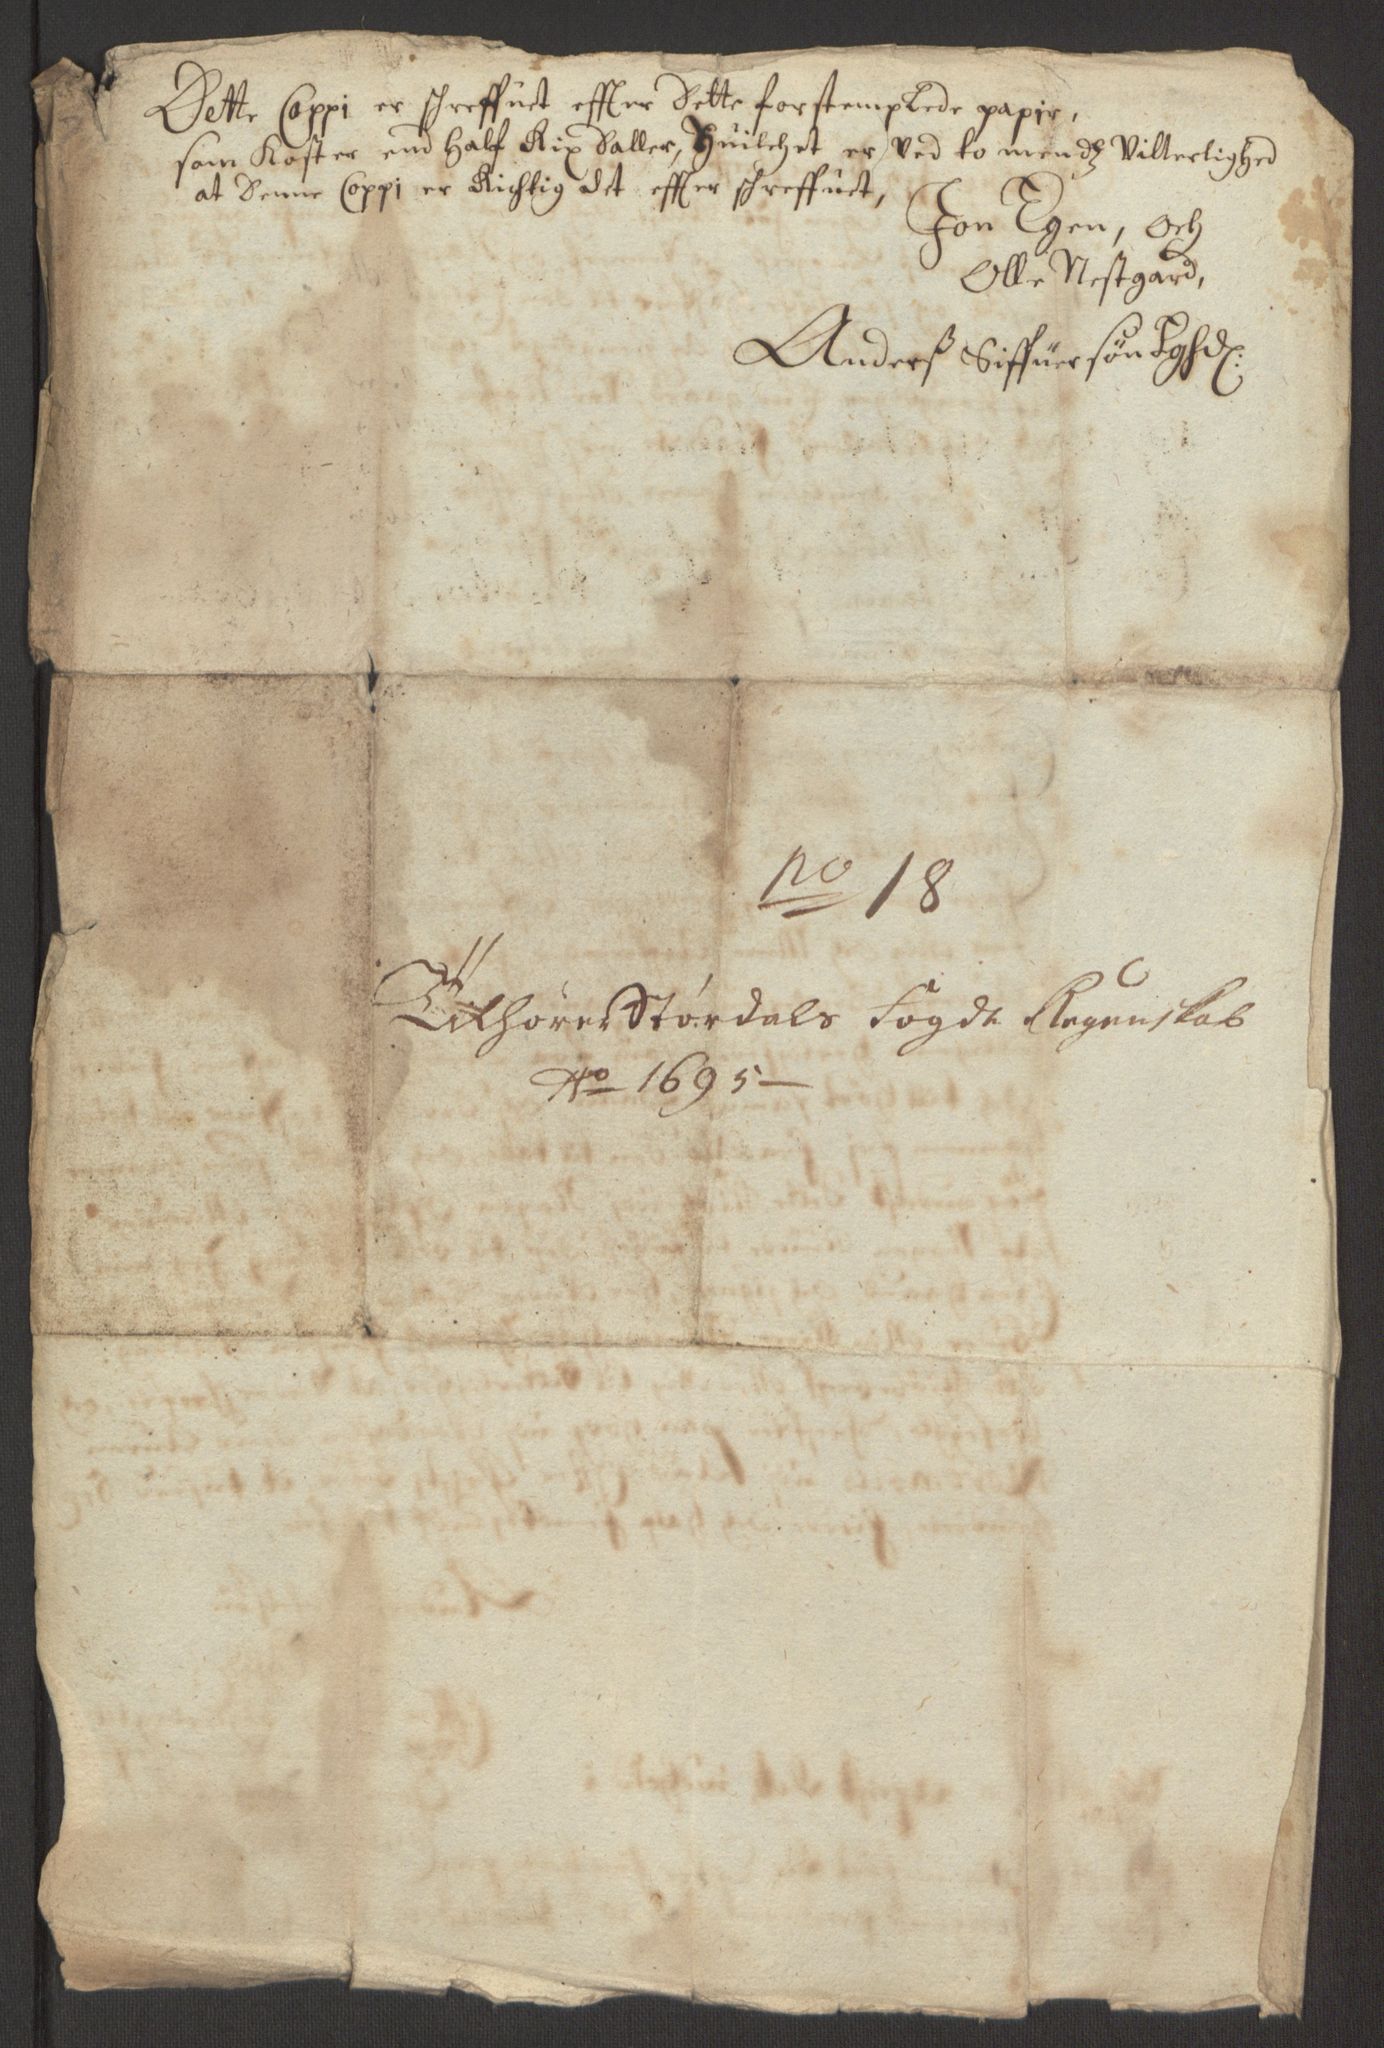 Dette Coppi er schreffuet effter dette forstemplede papir,
som Koster end half Rix daller, Huilchet er Ved to mendz Vitterlighed
at denne Coppi er Richtig det effter schreffuet,
Jon Egen, och
Olle Nestgard,
Anderß Siffuersøn
no 18
Tilhører Størdals Fogde Regenskab
Ao 1695